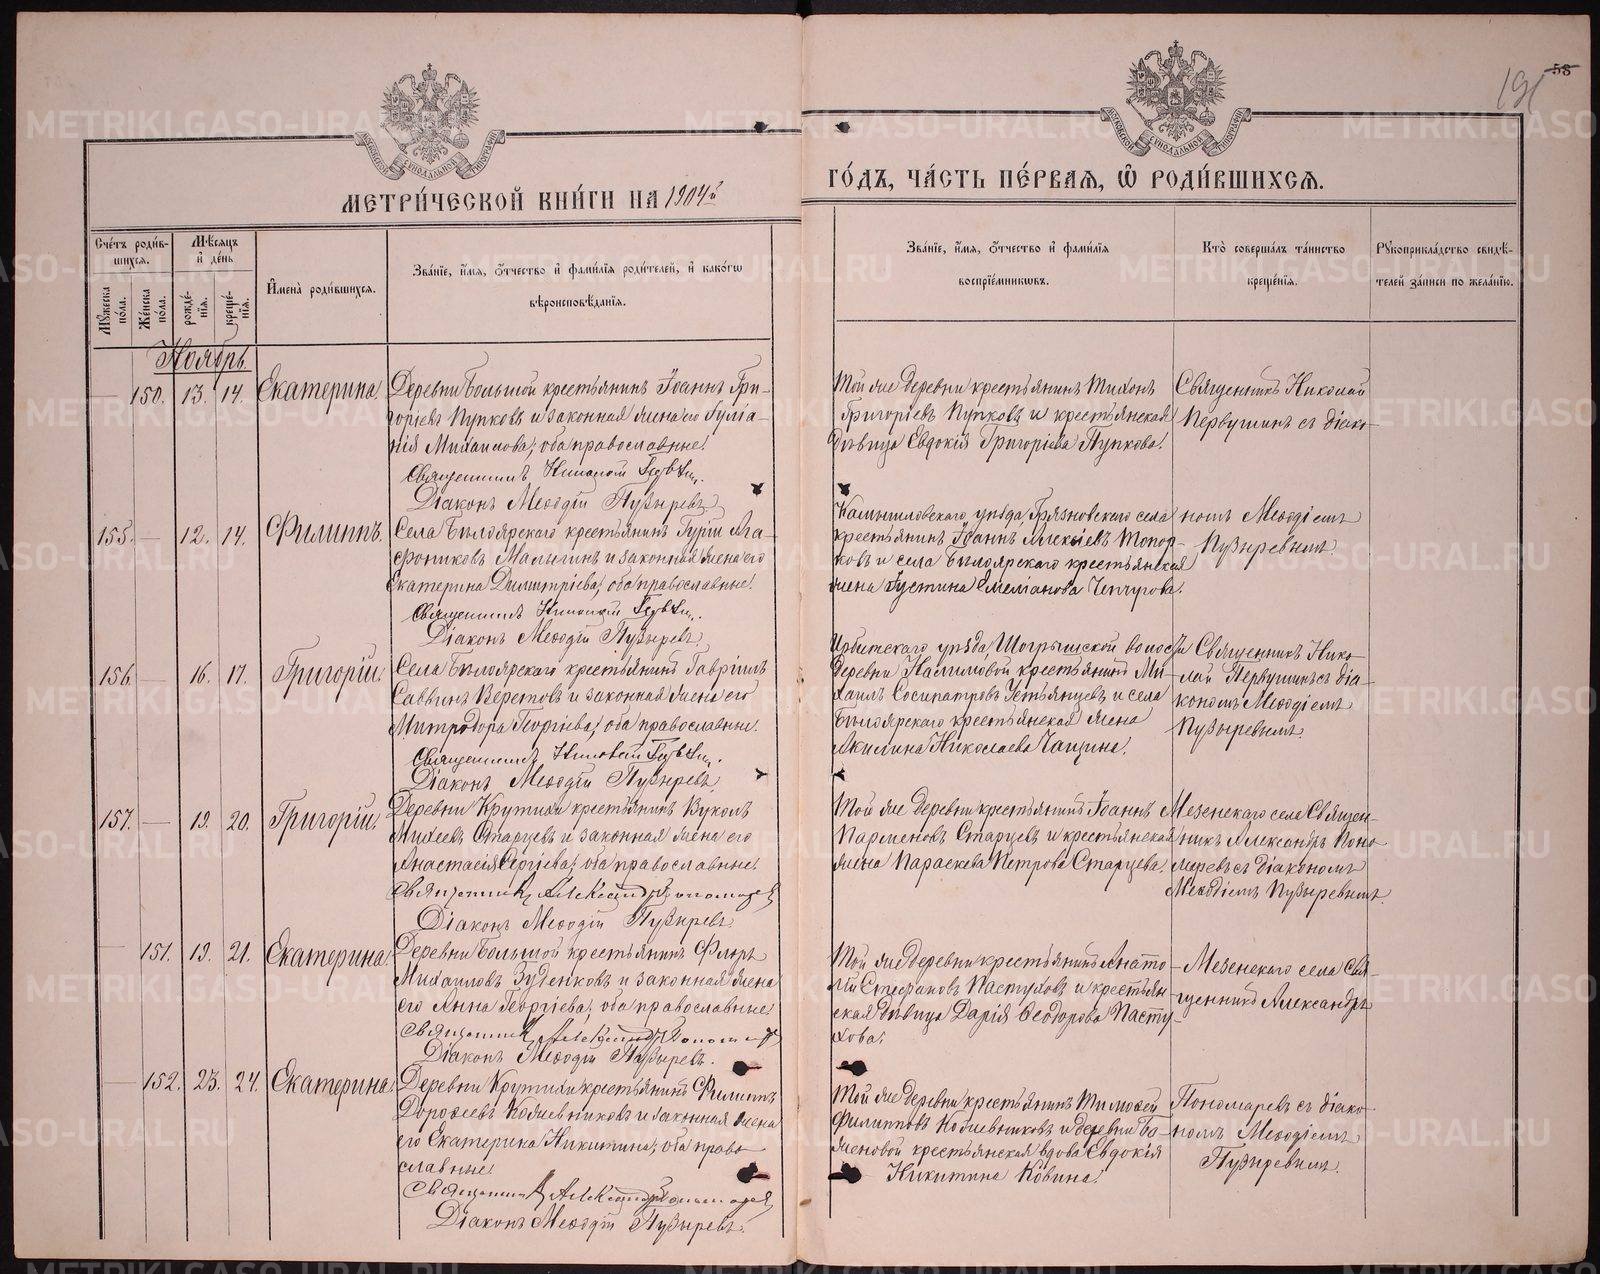 58
191
МЕТРИ́ЧЕСКОЙ КНИ́ГИ НА 1904й
ГО́ДЪ, ЧА́СТЬ ПЕ́РВАЯ, Ѽ РОДИ́ВШИХСЯ.
Сче́тъ роди́в-
шихся.
Мꙋ́жеска по́ла.
Же́нска по́ла.
Мѣ́сяцъ и҆ де́нь
рожде́-нїя.
креще́-нїя.
И҆мена̀ роди́вшихся.
Зва́нїе, и҆́мя, ѻ҆́тчество и҆ фами́лїя роди́телей, и҆ како́гѡ
вѣроисповѣ́данїя.
Зва́нїе, и҆́мя, ѻ҆́тчество и҆ фами́лїя
воспрїе́мникѡвъ.
Кто̀ соверша́лъ та́инство
креще́нїя.
Рꙋкоприкла́дство свидѣ́-
телей за́писи по жела́нїю.
Ноябрь
— 150. 13. 14. Екатерина.
Деревни Большой крестьянинъ Іоаннъ Гри-
горіевъ Пупковъ и законная жена его Іуліа-
нія Михаилова, оба православные.
Священникъ Николай
Діаконъ Меѳодій Пузыревъ
Той же деревни крестьянинъ Тихонъ
Григоріевъ Пупковъ и крестьянская
дѣвица Евдокія Григоріева Пупкова.
Священникъ Николай
Первушинъ съ діако-
155. — 12. 14. Филиппъ.
Села Бѣлоярскаго крестьянинъ Гурій Ага-
фониковъ Малыгинъ и законная жена его
Екатерина Димитріева, оба православные.
Священникъ Николай
Діаконъ Меѳодій Пузыревъ
Камышловскаго уѣзда, Грязновскаго села
крестьянинъ Іоаннъ Алексіевъ Топор-
ковъ и села Бѣлоярскаго крестьянская
жена Іустина Емеліанова Чепчугова.
номъ Меѳодіемъ
Пузыревымъ.
156. — 16. 17. Григорій.
Села Бѣлоярскаго крестьянинъ Гавріилъ
Саввинъ Веретовъ и законная жена его
Митродора Георгіева, оба православные.
Священникъ Николай
Діаконъ Меѳодій Пузыревъ
Ирбитскаго уѣзда, Шогрышской волости
деревни Налимовой крестьянинъ Ми-
хаилъ Сосипатровъ Устьянцевъ и села
Бѣлоярскаго крестьянская жена
Акилина Николаева Чащина.
Священникъ Нико-
лай Первушинъ съ діа-
кономъ Меѳодіемъ
Пузыревымъ.
157. — 19. 20. Григорій.
Деревни Крутихи крестьянинъ Вуколъ
Михеевъ Старцевъ и законная жена его
Анастасія Сергіева, оба православные.
Священникъ Александръ Пономаревъ
Діаконъ Меѳодій Пузыревъ
Той же деревни крестьянинъ Іоаннъ
Парменовъ Старцевъ и крестьянская
жена Параскева Петрова Старцева.
Мезенскаго села Священ-
никъ Александръ Поно-
маревъ съ діакономъ
Меѳодіемъ Пузыревымъ.
— 151. 19. 21. Екатерина.
Деревни Большой крестьянинъ Флоръ
Михаиловъ Зуденковъ и законная жена
его Анна Георгіева, оба православные.
Священникъ Александръ Пономаревъ
Діаконъ Меѳодій Пузыревъ.
Той же деревни крестьянинъ Анато-
лій Стефановъ Пастуховъ и крестьян-
ская дѣвица Дарія Ѳеодорова Пасту-
хова.
Мезенскаго села Свя-
щенникъ Александръ
— 152. 23. 24. Екатерина.
Деревни Крутихи крестьянинъ Филиппъ
Дороѳеевъ Кожевниковъ и законная жена
его Екатерина Никитина, оба право-
славные.
Священникъ Александръ Пономаревъ
Діаконъ Меѳодій Пузыревъ.
Той же деревни крестьянинъ Тимоѳей
Филипповъ Кожевниковъ и деревни Ба-
женовой крестьянская вдова Евдокія
Никитина Ковина.
Пономаревъ съ діако-
номъ Меѳодіемъ
Пузыревымъ.